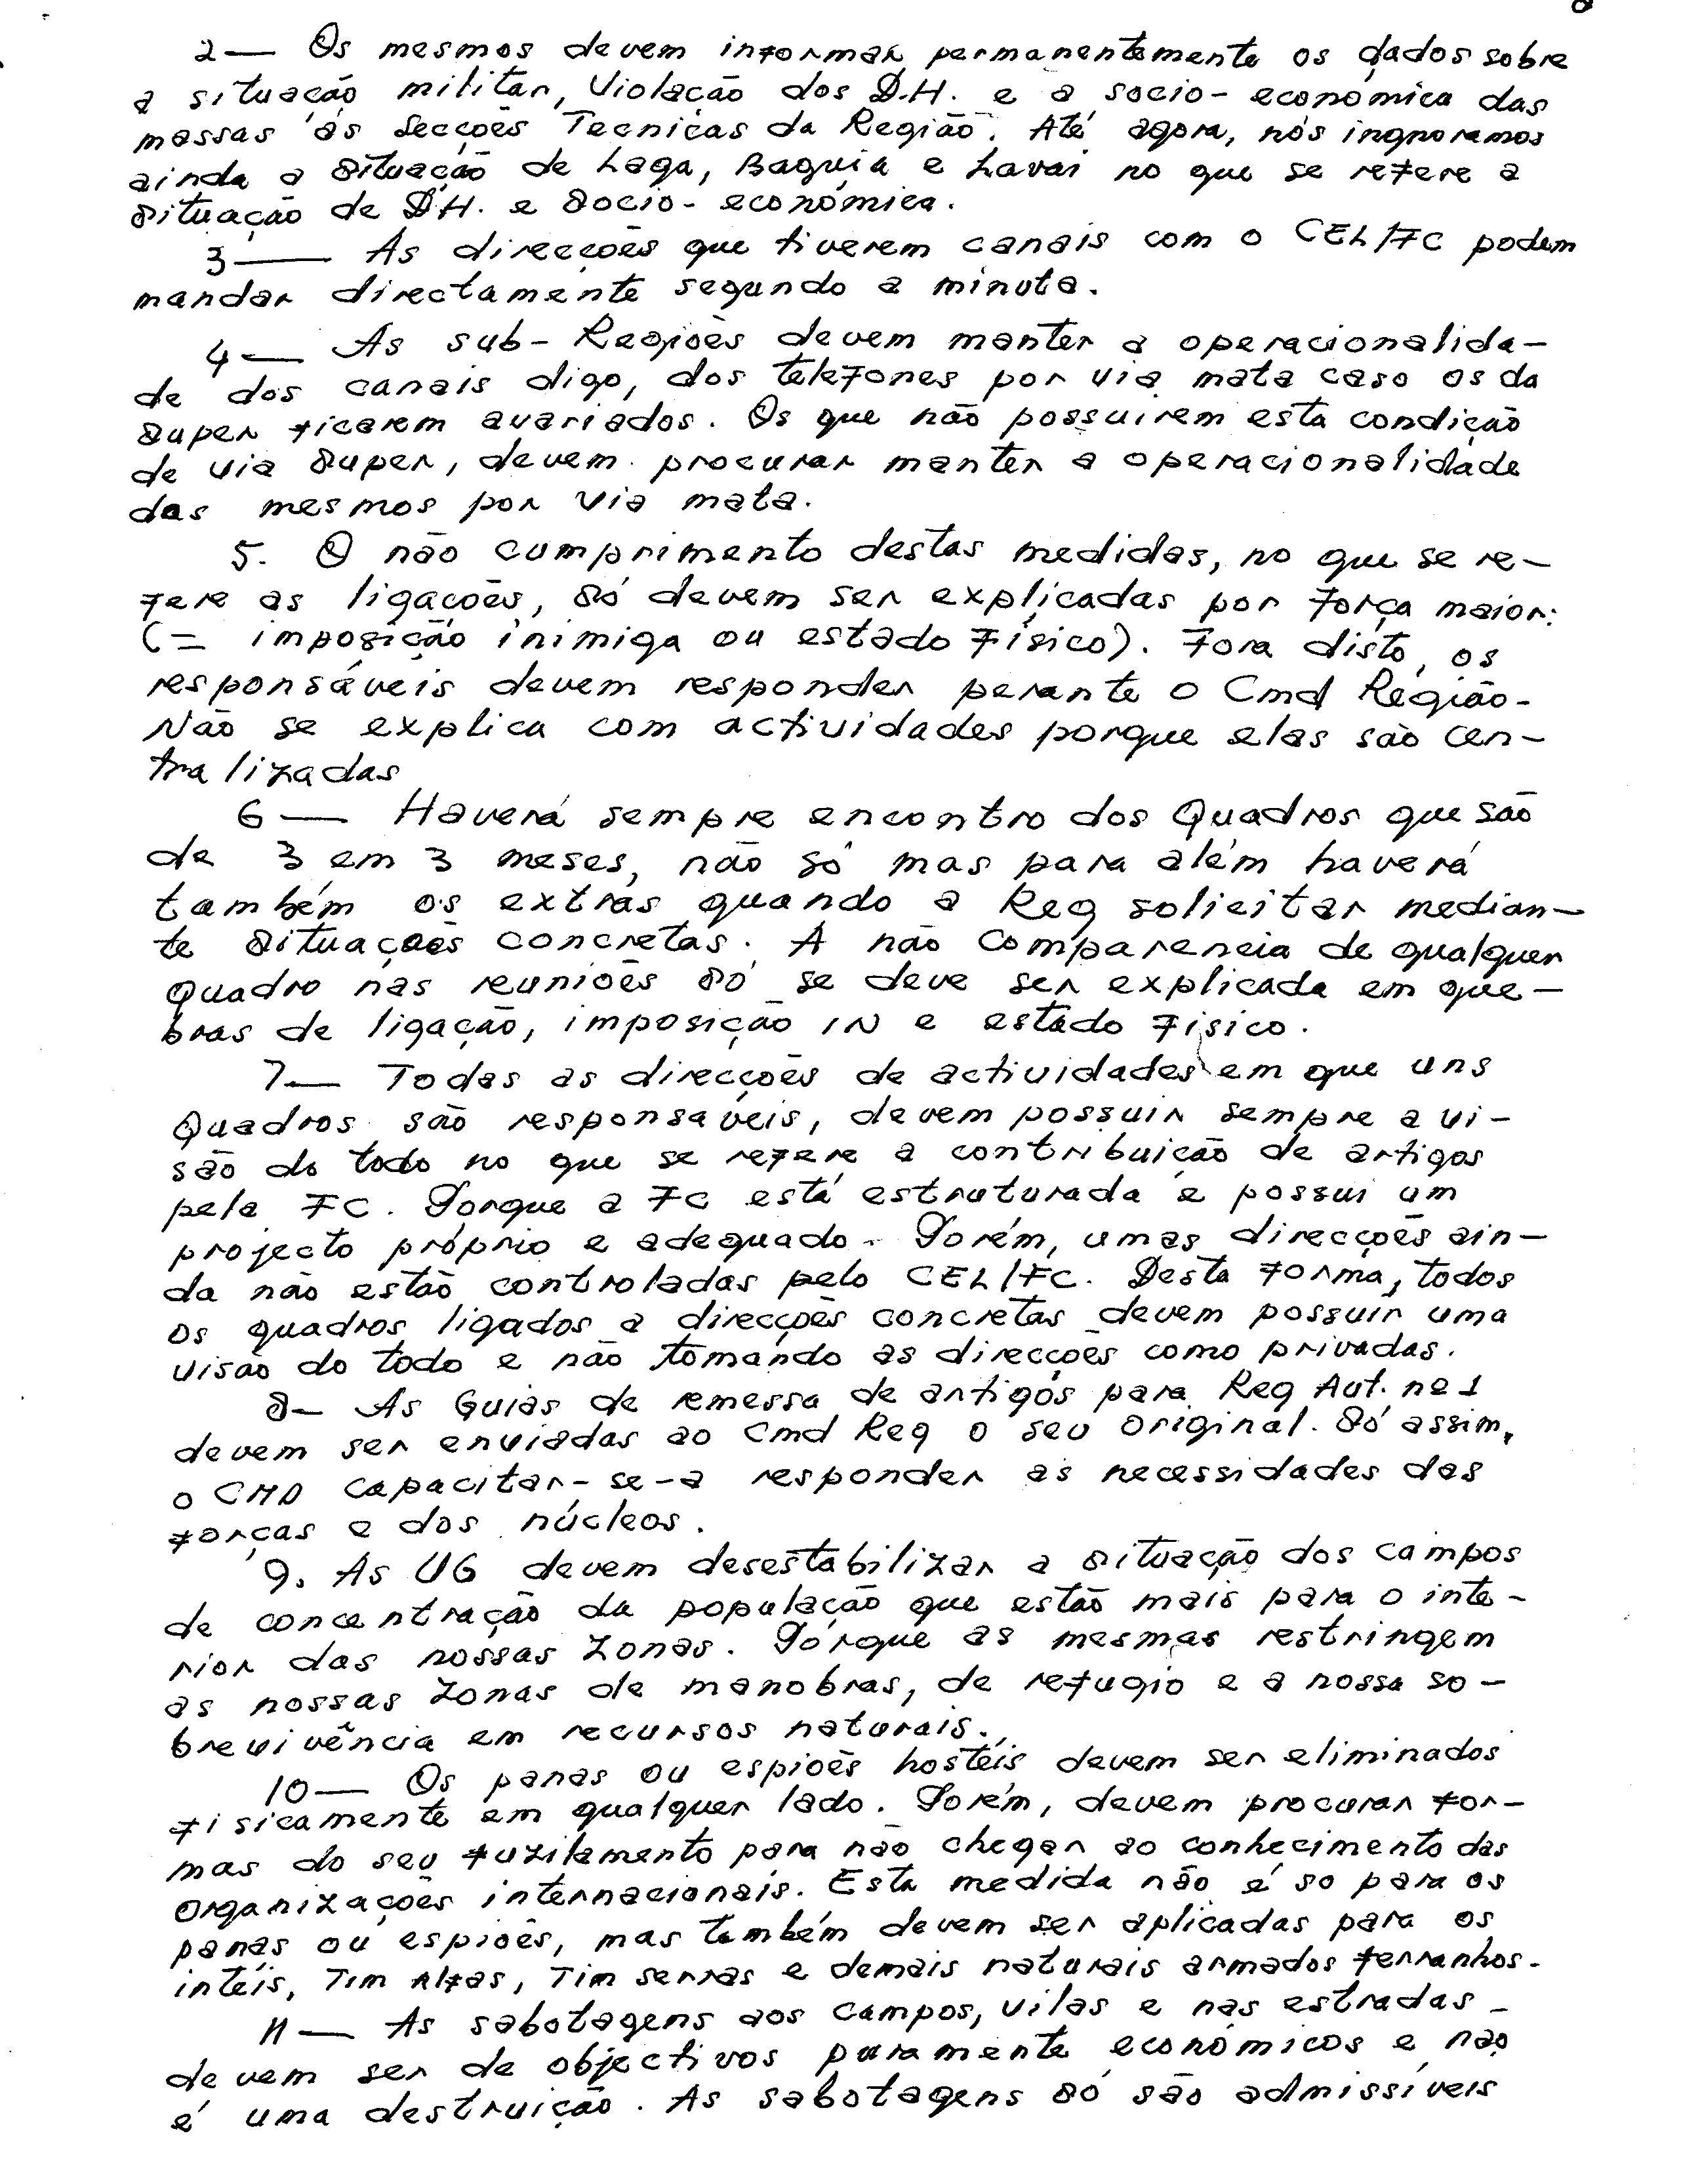 2— Os mesmos devem informar permanentemente os dados sobre
a situação militar, Violação dos D.H. e a socio-económica das
massas às Secções Tecnicas da Região. Até agora, nós ingnoramos
ainda a situação de Laga, Baguia e Lavai no que se refere a
situação de D.H. e socio-económica.
3— As direcções que tiverem canais com o CEL/FC podem
mandar directamente segundo a minuta.
4— As sub-Regiões devem manter a operacionalida-
de dos canais digo, dos telefones por via mata caso os da
super ficarem avariados. Os que não possuirem esta condição
de via super, devem procurar manter a operacionalidade
das mesmos por via mata.
5. O não cumprimento destas medidas, no que se re-
fere as ligações, só devem ser explicadas por força maior:
(= imposição inimiga ou estado físico). Fora disto, os
responsáveis devem responder perante o Cmd Região.
Não se explica com actividades porque elas são cen-
tralizadas
6— Haverá sempre encontro dos Quadros que são
de 3 em 3 meses, não só mas para além haverá
também os extras quando a Reg solicitar median-
te situações concretas. A não comparencia de qualquer
quadro nas reuniões só se deve ser explicada em que-
bras de ligação, imposição IN e estado fisico.
7— Todas as direcções de actividades em que uns
Quadros são responsáveis, devem possuir sempre a vi-
são do todo no que se refere a contribuição de artigos
pela FC. Porque a FC está estruturada e possui um
projecto próprio e adequado. Porém, umas direcções ain-
da não estão controladas pelo CEL/FC. Desta forma, todos
os quadros ligados a direcções concretas devem possuir uma
visão do todo e não tomando as direcções como privadas.
8— As Guias de remessa de artigos para Reg Aut. nº 1
devem ser enviadas ao Cmd Reg o seu original. Só assim,
o CMD capacitar-se-a responder as necessidades das
forças e dos núcleos.
9. As UG devem desestabilizar a situação dos campos
de concentração da população que estão mais para o inte-
rior das nossas zonas. Porque as mesmas restringem
as nossas zonas de manobras, de refugio e a nossa so-
brevivência em recursos naturais.
10— Os panas ou espiões hostéis devem ser eliminados
fisicamente em qualquer lado. Porém, devem procurar for-
mas do seu fuzilamento para não chegar ao conhecimento das
organizações internacionais. Esta medida não é so para os
panas ou espiões, mas também devem ser aplicadas para os
inteis, Tim Alfas, Tim serras e demais naturais armados ferranhos.
11— As sabotagens aos campos, vilas e nas estradas
devem ser de objectivos puramente económicos e não
é uma destruição. As sabotagens só são admissíveis